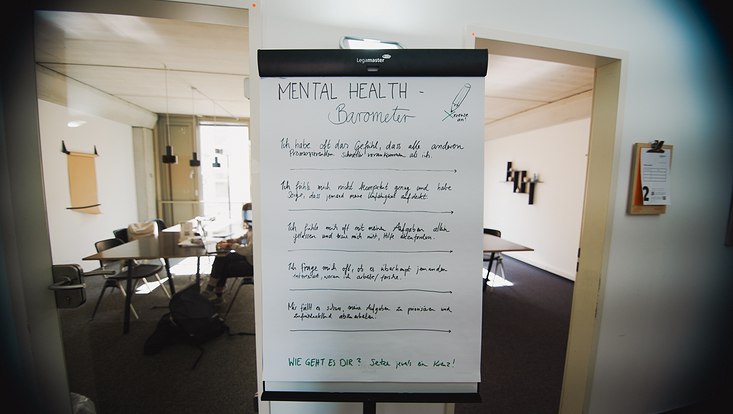 Legamaster
MENTAL HEALTH -
Barometer
kreuze
an!
Ich habe oft das Gefühl, dass alle anderen
Promovierenden schneller vorankommen als ich.
Ich fühle mich nicht kompetent genug und habe
Sorge, dass jemand meine Unfähigkeit aufdeckt.
Ich fühle mich oft mit meinen Aufgaben allein
gelassen und traue mich nicht, Hilfe einzufordern.
Ich frage mich oft, ob es überhaupt jemanden
interessiert, woran ich arbeite/forsche.
Mir fällt es schwer, meine Aufgaben zu priorisieren und
abzuarbeiten.
WIE GEHT ES DIR? Setze jeweils ein Kreuz!
2